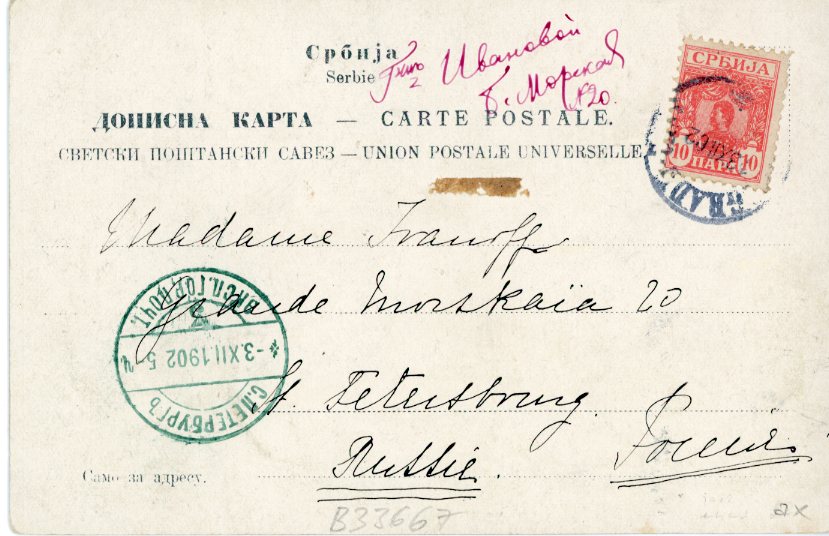 Србија
Serbie
Г-жѣ Ивановой
Б. Морская
№20.
ДОПИСНА КАРТА — CARTE POSTALE.
СВЕТСКИ ПОШТАНСКИ САВЕЗ — UNION POSTALE UNIVERSELLE
СРБИЈА
10 ПАРА 10
GRAD
Madame Ivanoff
Grande Morskaïa 20
St. Petersbourg.
Russie.
Россія
ЭКСП. ГОР. ПОЧТ.
-3.XII.1902 5 ч
С.ПЕТЕРБУРГЪ
Само за адресу.
B33667
ax